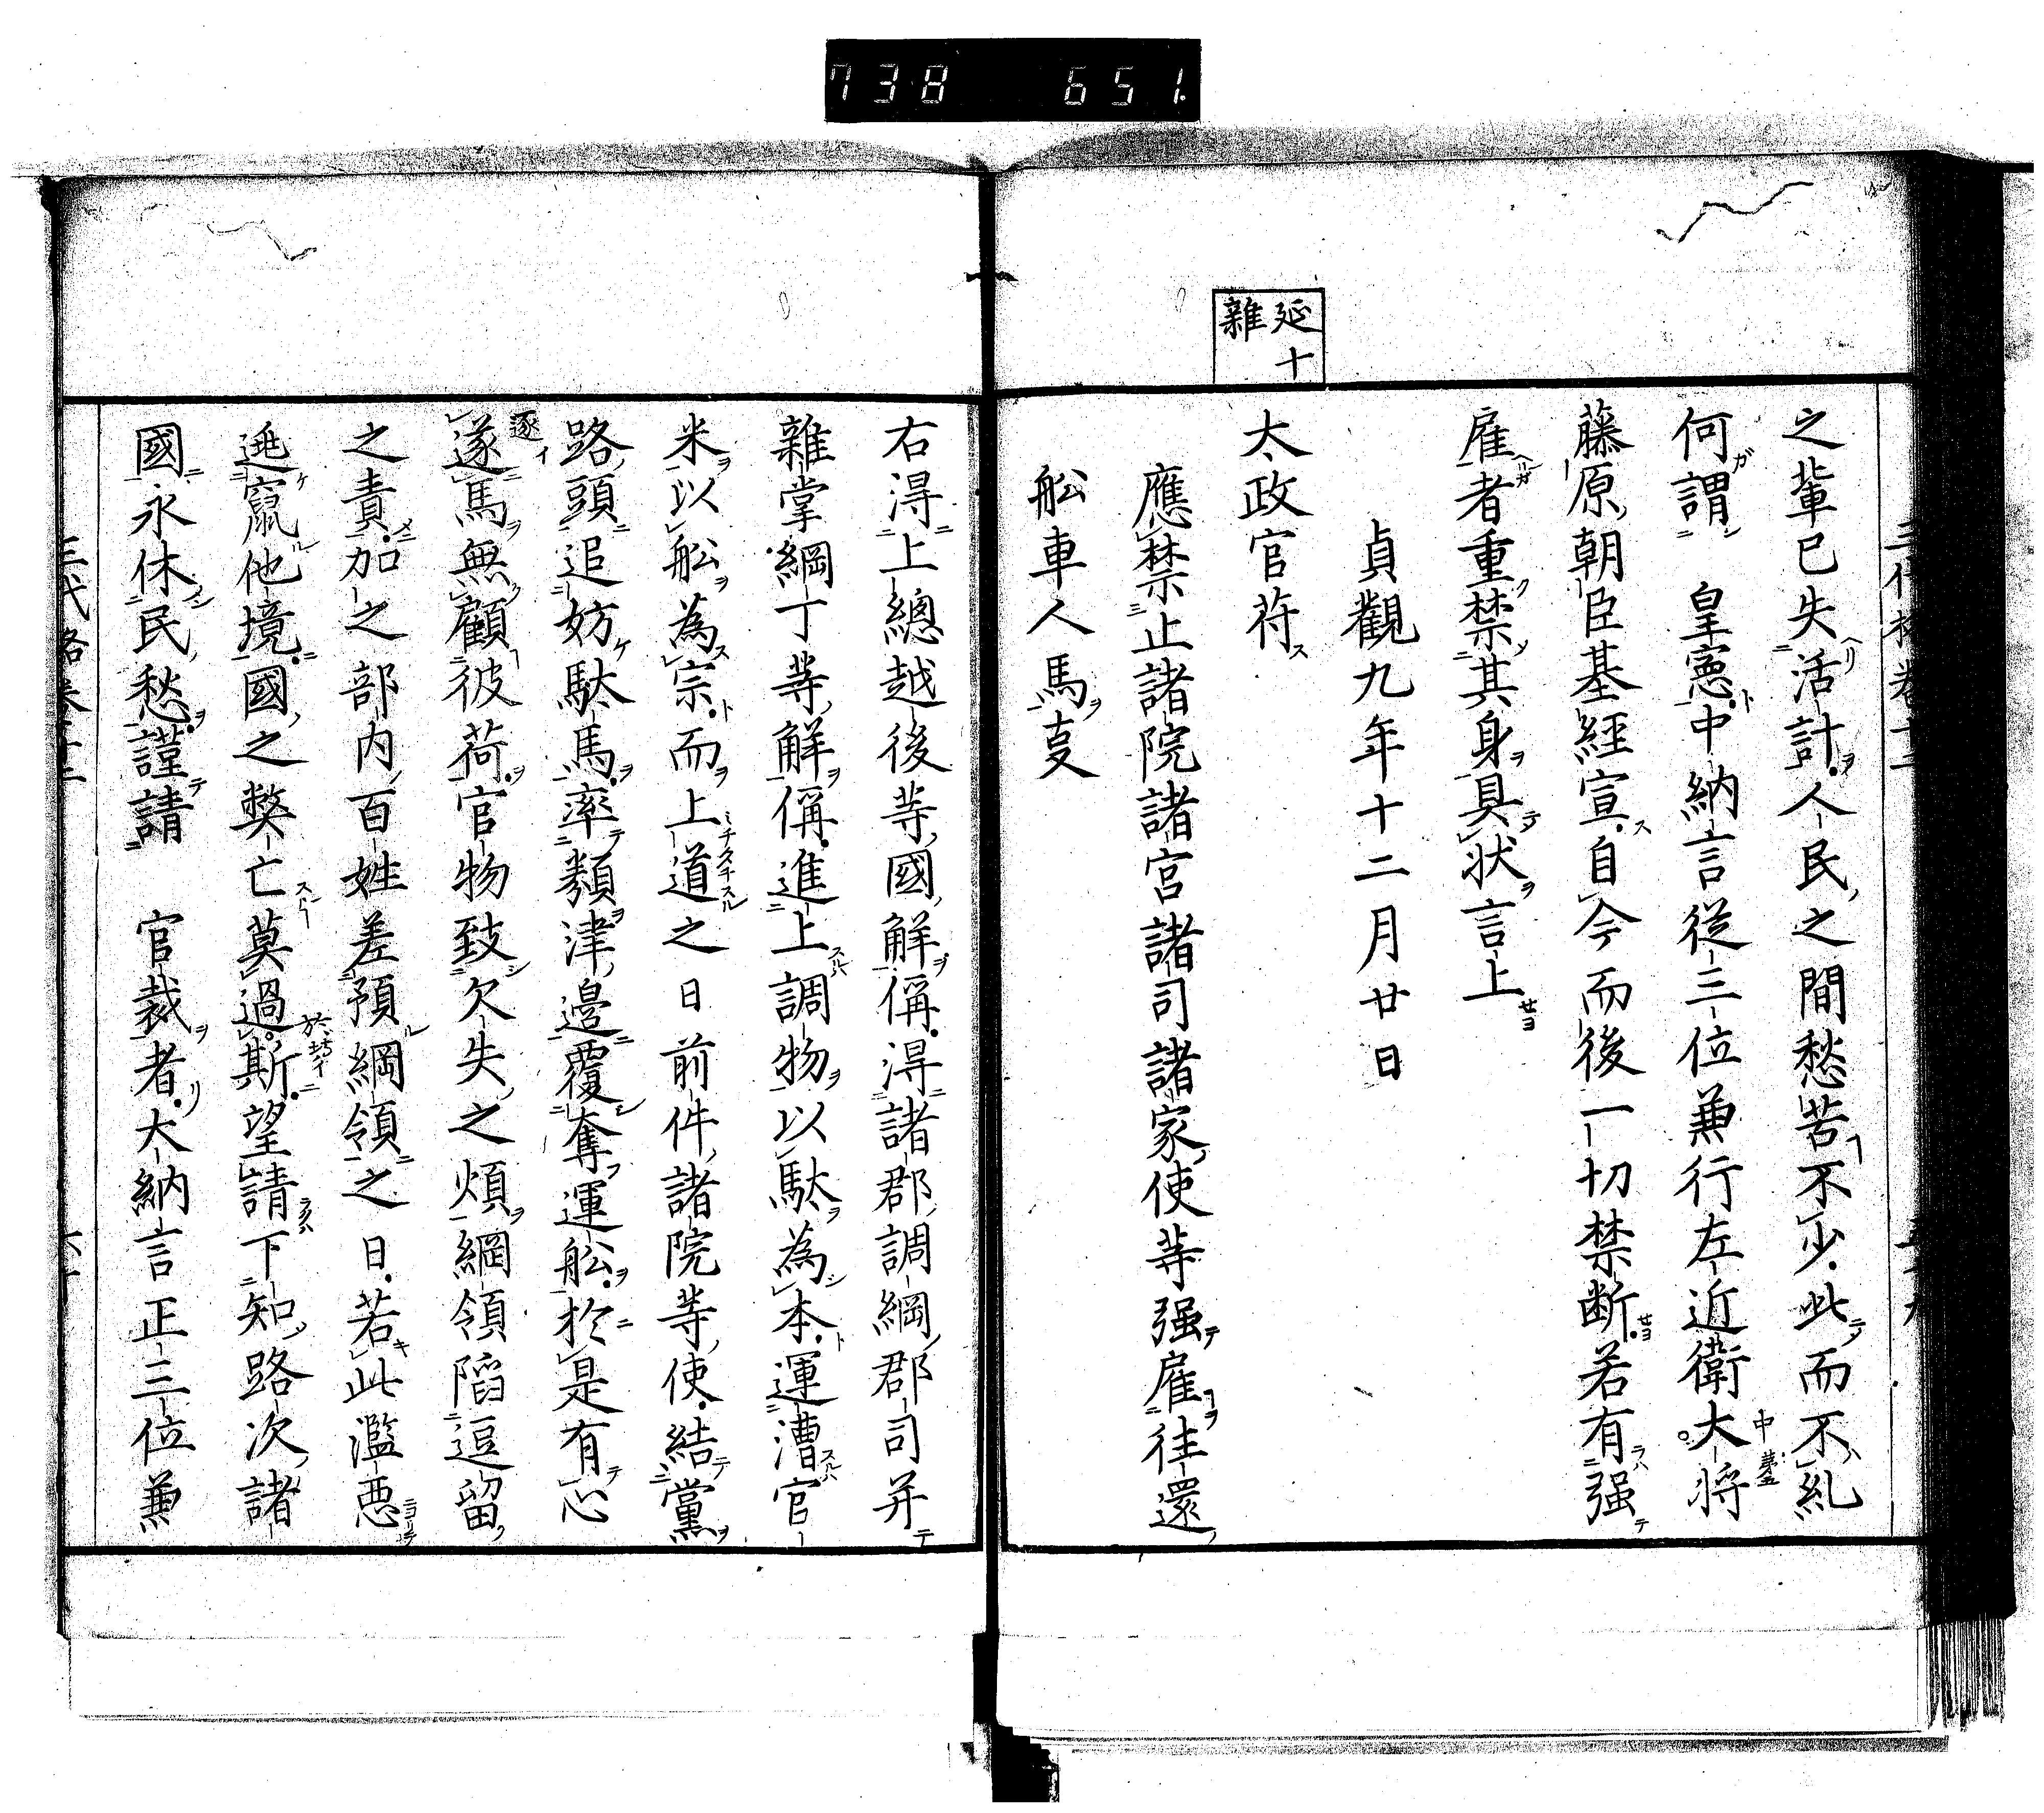 738 651.
延十
雜
之輩已失活計人民之間愁苦不少此而不糺
何謂 皇憲中納言從三位兼行左近衛大将
藤原朝臣基經宣自今而後一切禁断若有强
雇者重禁其身具状言上
貞觀九年十二月廿日
太政官苻
應禁止諸院諸宮諸司諸家使等强雇往還
舩車人馬叓
右得上總越後等國解偁得諸郡調綱郡司并
雜掌綱丁等解偁進上調物以駄為本運漕官
米以舩為宗而上道之日前件諸院等使結黨
路頭追妨駄馬率類津邊覆奪運舩於是有心
遂馬無顧彼荷官物致欠失之煩綱領陷逗留
之責加之部内百姓差預綱領之日若此濫悪
逃竄他境國之弊亡莫過斯望請下知路次諸
國永休民愁謹請 官裁者大納言正三位兼
三代格卷十二